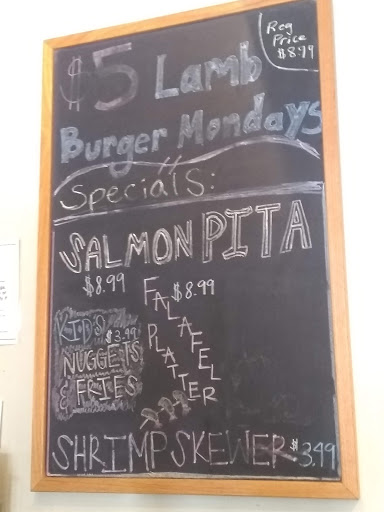 $5 Lamb
Reg
Price
$8.99
Burger Mondays
Specials:
SALMON PITA
$8.99
FALAFEL
PLATTER
$8.99
KIDS
$3.49
NUGGETS
& FRIES
SHRIMP SKEWER $3.49